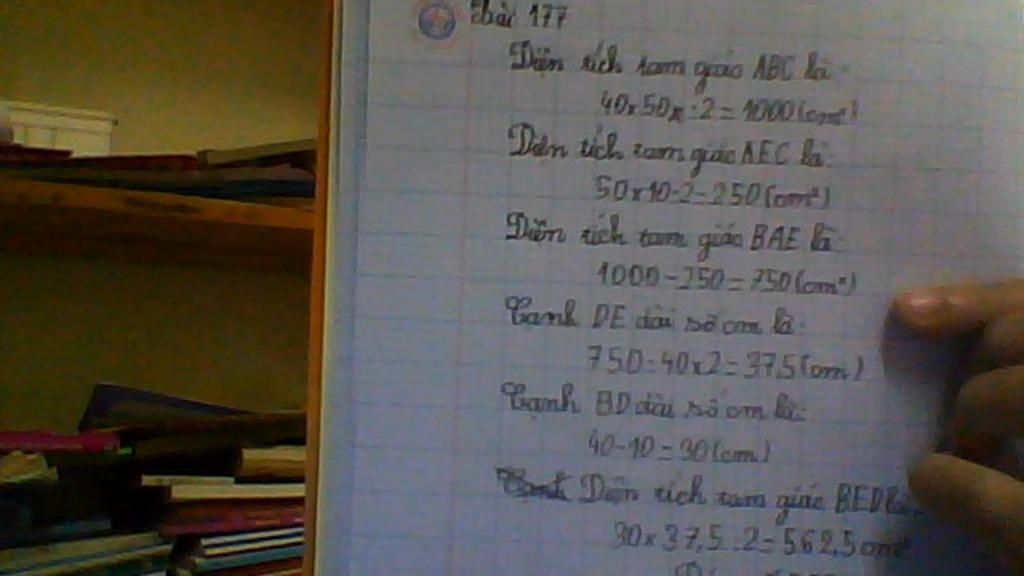 Bài 177
Diện tích tam giác ABC là:
40 x 50 x : 2 = 1000 (cm²)
Diện tích tam giác AEC là:
50 x 10 : 2 = 250 (cm²)
Diện tích tam giác BAE là:
1000 - 250 = 750 (cm²)
Cạnh DE dài số cm là:
750 : 40 x 2 = 37,5 (cm)
Cạnh BD dài số cm là:
40 - 10 = 30 (cm)
Diện tích tam giác BED là:
30 x 37,5 : 2 = 562,5 cm²